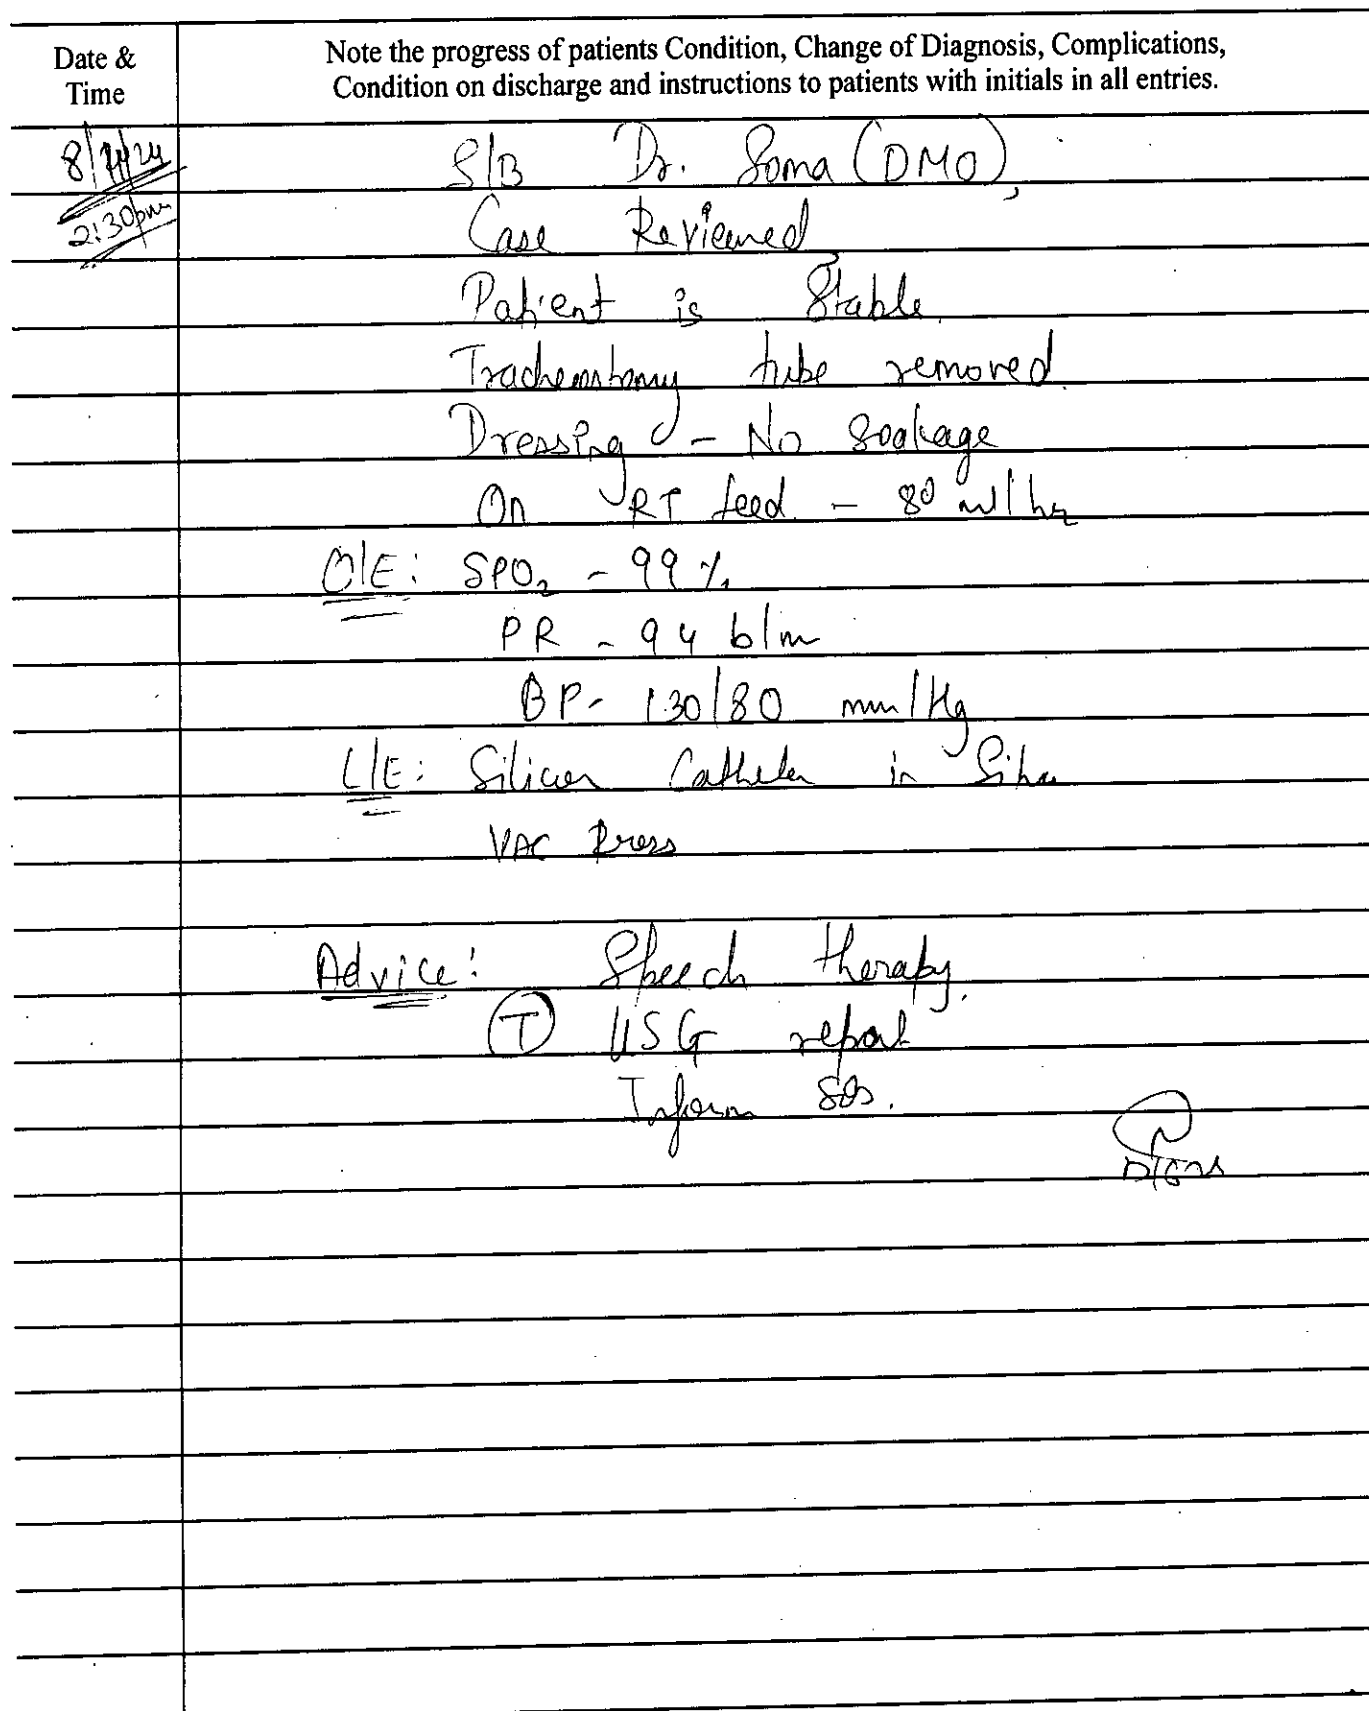 Date &
Time
Note the progress of patients Condition, Change of Diagnosis, Complications,
Condition on discharge and instructions to patients with initials in all entries.
2:30pm
S/B Dr. Soma (DMO)
Case Reviewed
Patient is Stable.
Tracheostomy tube removed.
Dressing - No Soakage
On RT feed - 80 ml/hr
O/E: SPO2 - 99%
PR - 94 b/m
BP- 130/80 mm/Hg
L/E: Silicon Catheter in Situ
VAC Press
Advice: Speech therapy.
(T) USG report
Inform SOS.